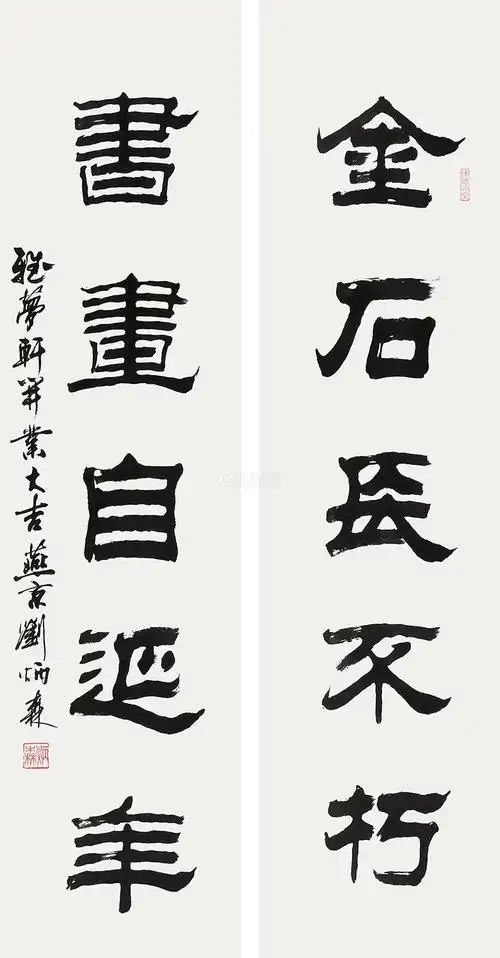 金石長不朽
書畫自延年
雅夢軒開業大吉燕京劉炳森
炳森